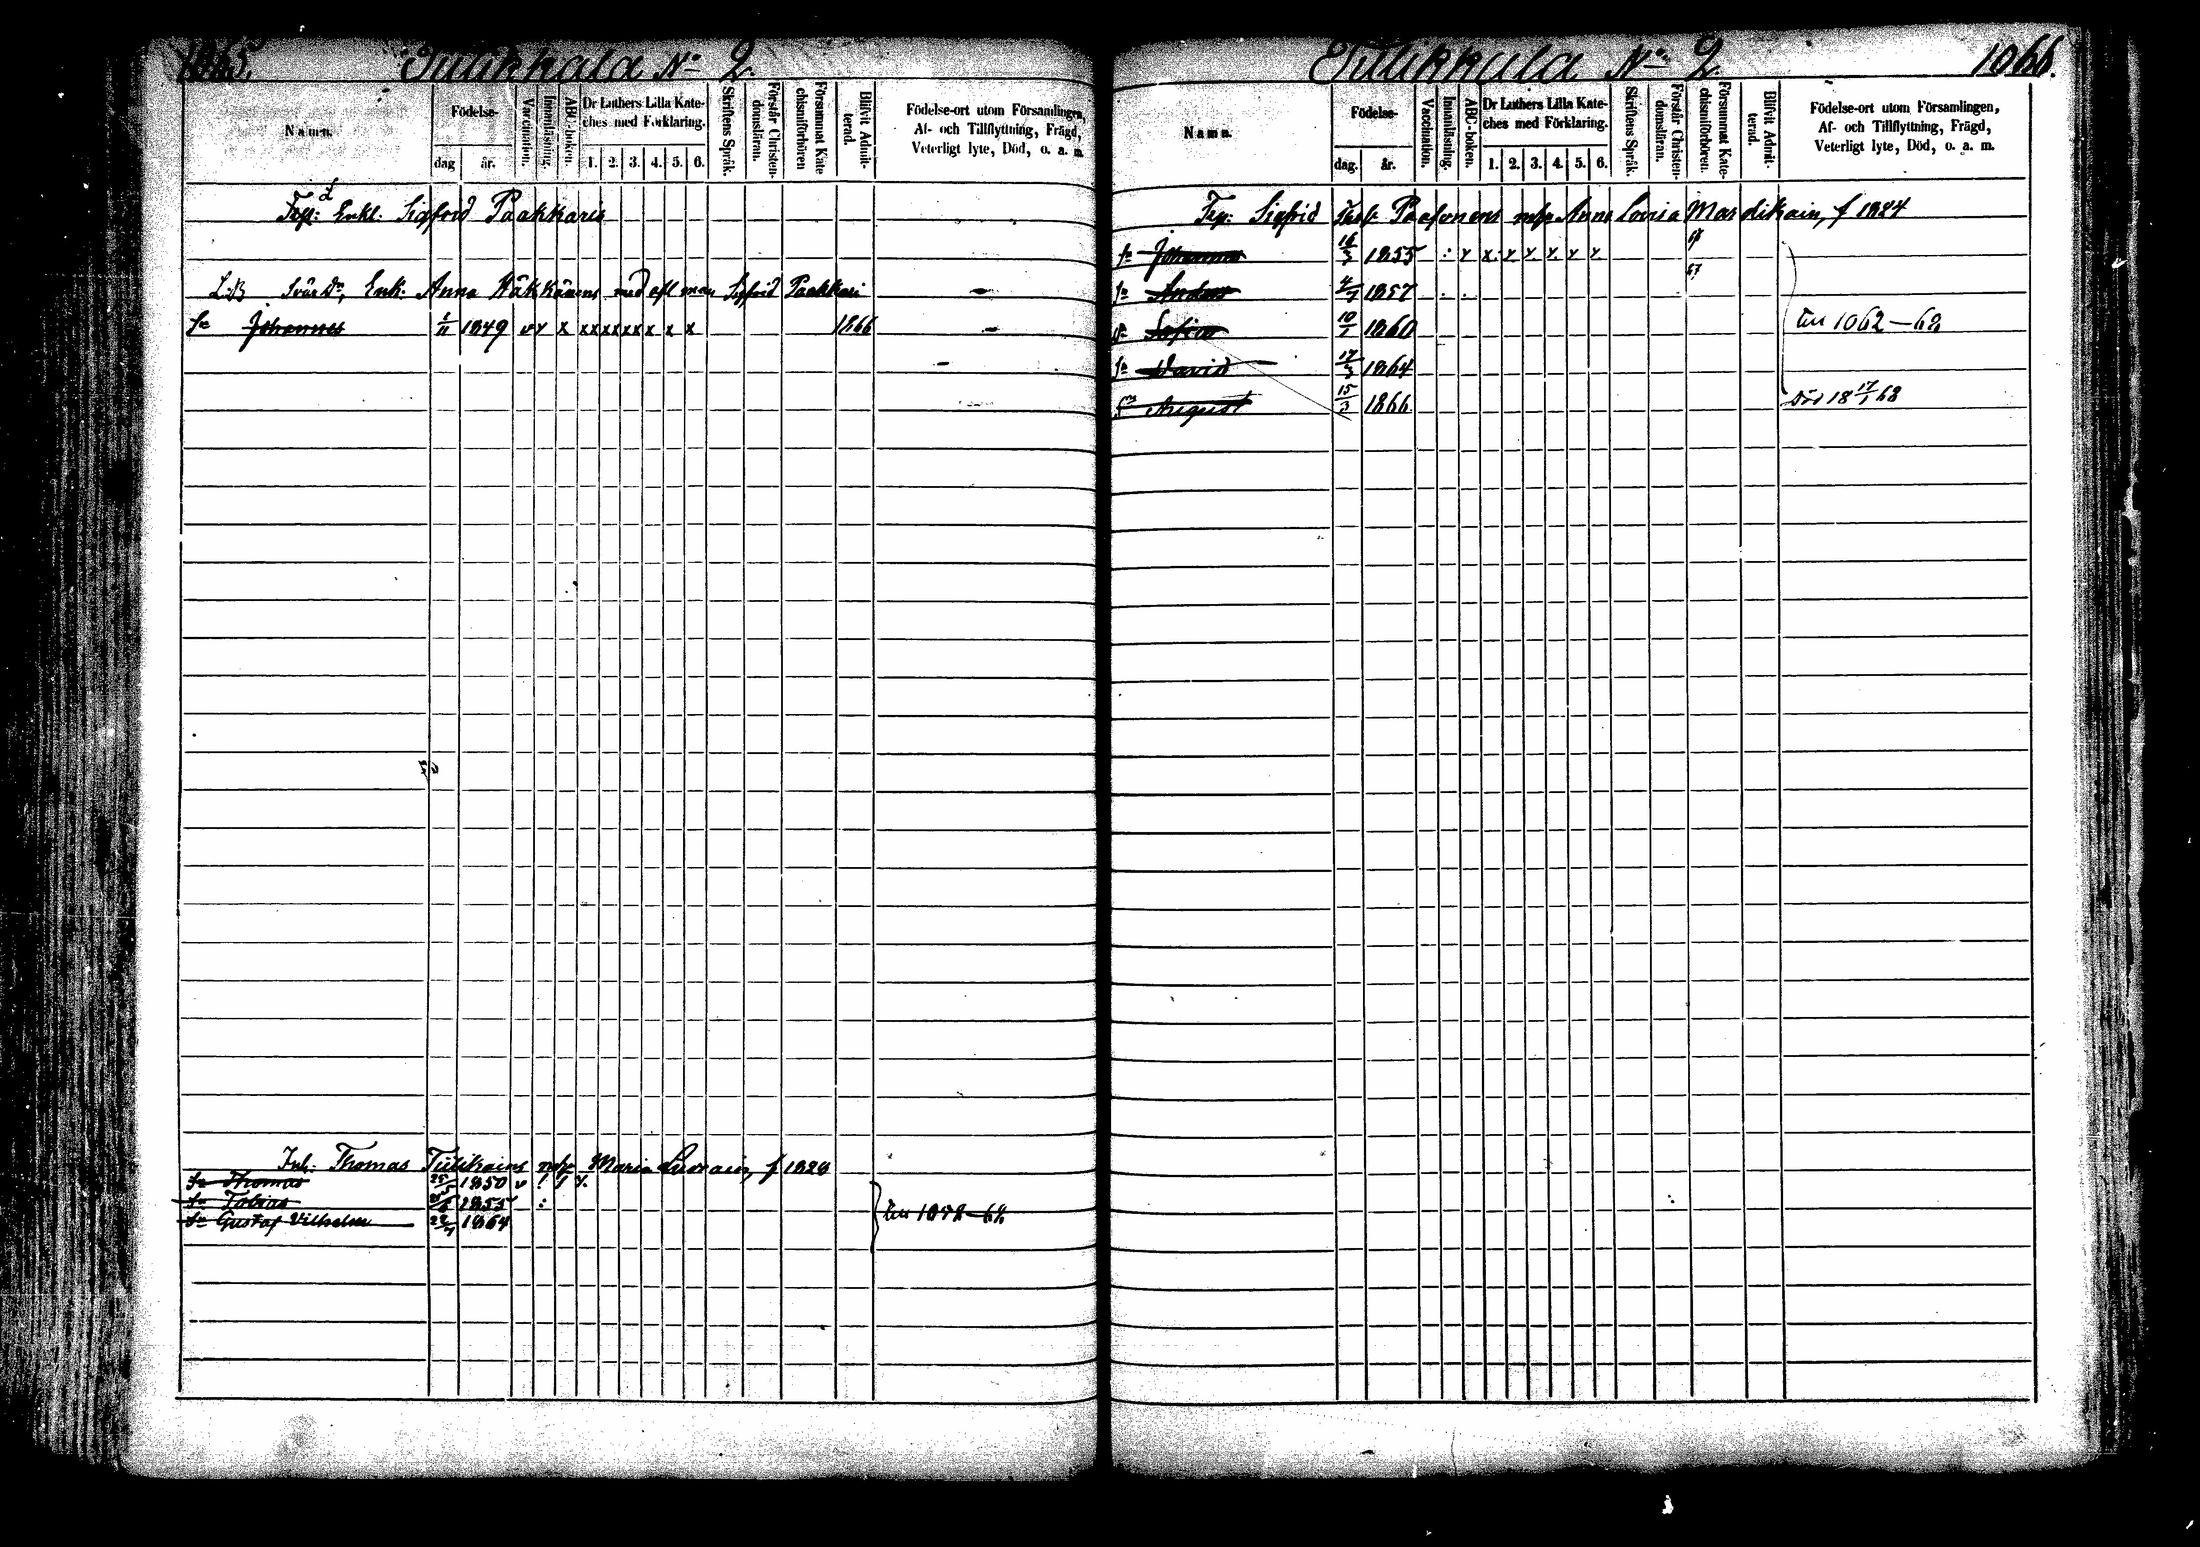 1065. Tiilikkala No 2.
Namn.
Födelse-
dag år.
Vaccination.
Innanläsning.
ABC-boken.
Dr Luthers Lilla Kate-
ches med Förklaring.
1. 2. 3. 4. 5. 6.
Skriftens Språk.
Förstår Christen-
domsläran.
Försummat Kate
chismiförhören
Blifvit Admit-
terad.
Födelse-ort utom Församlingen,
Af- och Tillflyttning, Frägd,
Veterligt lyte, Död, o. a. m.
Enkl. Sigfrid Paakkaris
Enk: Anna Käkköinens med afl man Sigfrid Paakkari
Sn Johannes 1/11 1849 v v x x x x x x x x x 1866
Inh: Thomas Tiilikains mhu Maria Luorain, f 1828
Sn Thomas 25/5 1850 v
Sn Tobias 1855
Sn Gustaf Vilhelm 1864
till 1072-68
Tiilikkala No 2. 1066.
Namn.
Födelse-
dag. år.
Vaccination.
Innanläsning.
ABC-boken.
Dr Luthers Lilla Kate-
ches med Förklaring.
1. 2. 3. 4. 5. 6.
Skriftens Språk.
Förstår Christen-
domsläran.
Försummat Kate-
chismiförhören.
Blifvit Admit-
terad.
Födelse-ort utom Församlingen,
Af- och Tillflyttning, Frägd,
Veterligt lyte, Död, o. a. m.
Sigfrid Paasonens mhu Anna Lovisa Mardikain, f 1824
Sn Johannes 16/3 1855
67
Sn Anders 1857
Sofia 10/1 1860
till 1062-68
Sn David 17/3 1864
Sn August 15/3 1866
död 18 17/1 68